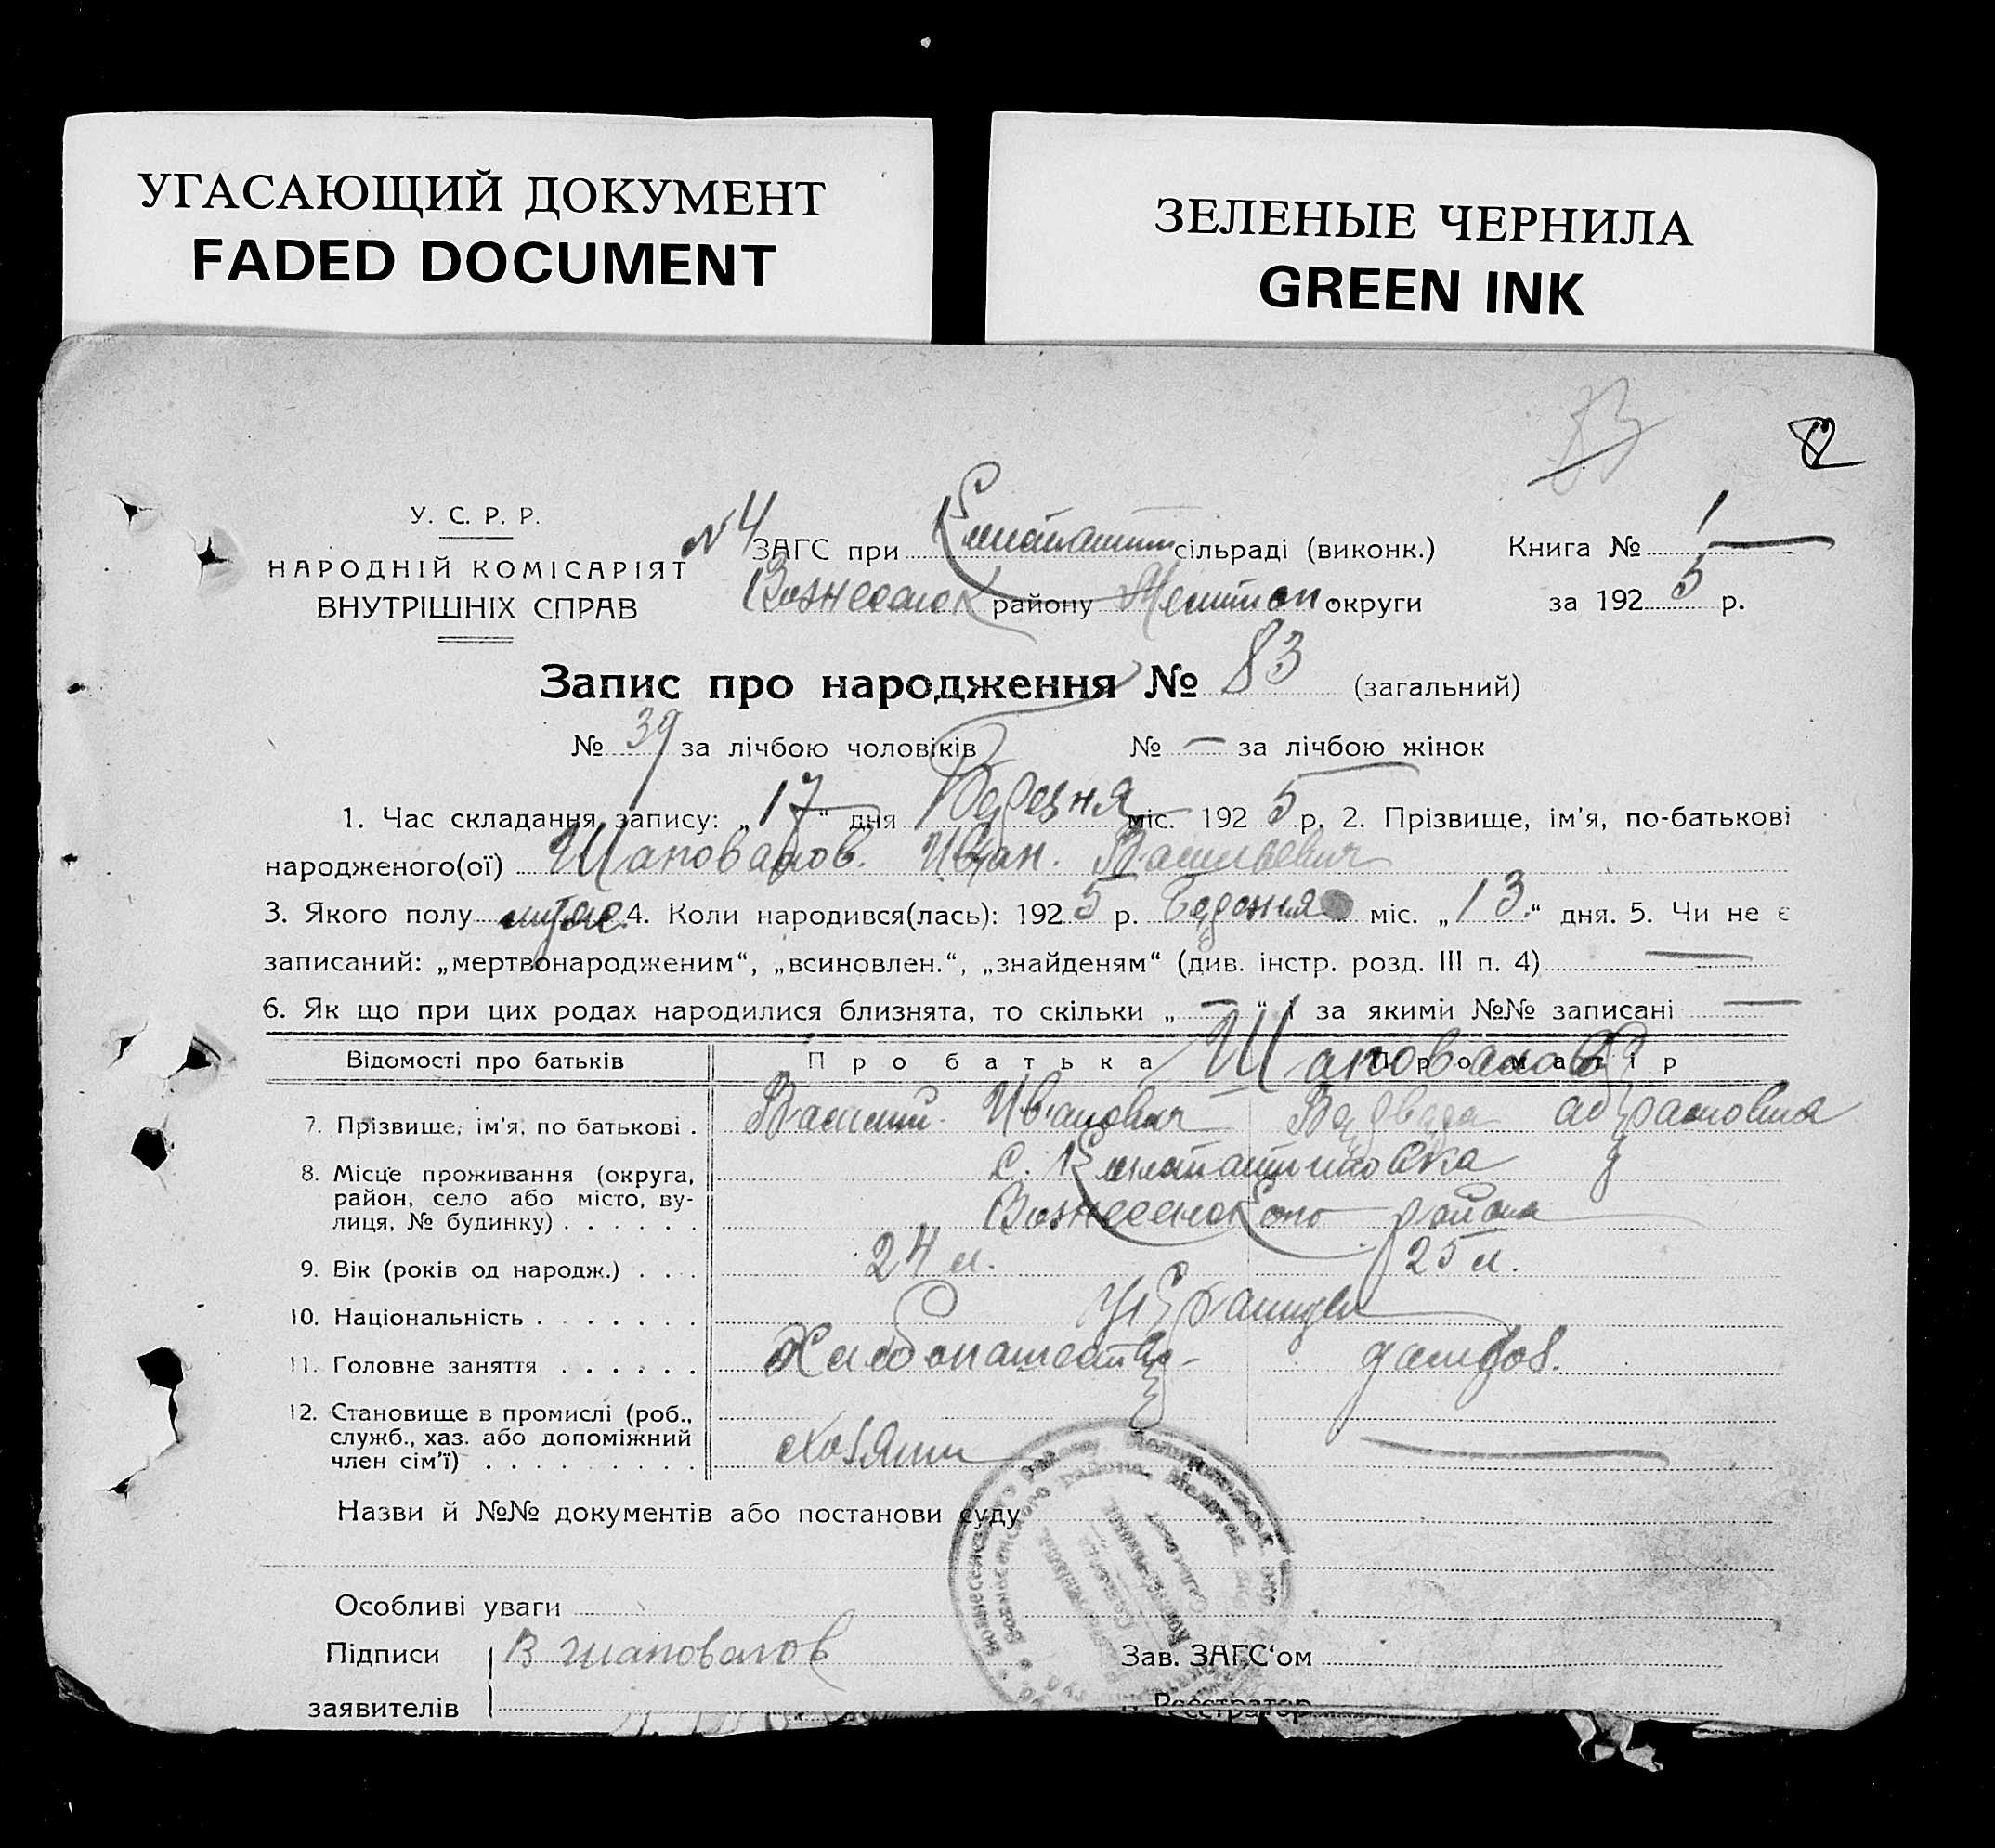 УГАСАЮЩИЙ ДОКУМЕНТ
FADED DOCUMENT
ЗЕЛЕНЫЕ ЧЕРНИЛА
GREEN INK
82
У. С. Р. Р.
НАРОДНІЙ КОМІСАРІЯТ
ВНУТРІШНІХ СПРАВ
N 4 ЗАГС при Констант сільраді (виконк.) Книга № 1
Вознесенск району Мелитоп. округи за 1925 р.
Запис про народження № 83 (загальний)
№ 39 за лічбою чоловіків № — за лічбою жінок
1. Час складання запису: „17“ дня Березня міс. 1925 р. 2. Прізвище, ім'я, по-батькові
народженого(ої) Шаповалов. Иван. Васильевич
3. Якого полу муже. 4. Коли народився(лась): 1925 р. Березня міс. „13.“ дня. 5. Чи не є
записаний: „мертвонародженим“, „всиновлен.“, „знайденям“ (див. інстр. розд. III п. 4) —
6. Як що при цих родах народилися близнята, то скільки „—“ і за якими №№ записані —
Відомості про батьків Про батька Про матір
Шаповалов
7. Прізвище, ім'я, по батькові . Василий. Иванович Варвара
8. Місце проживання (округа, район, село або місто, вулиця, № будинку) . . . . . . с. Константиновка
Вознесенского района
9. Вік (років од народж.) . . . 24 л. 25 л.
10. Національність . . . . . . . Украинцы
11. Головне заняття . . . . . . Хлебопашество
12. Становище в промислі (роб., служб., хаз. або допоміжний член сім'ї) . . . . . . . . . хозяин —
Назви й №№ документів або постанови суду
Особливі уваги
Підписи В Шаповалов Зав. ЗАГС‘ом
заявителів Реєстратор